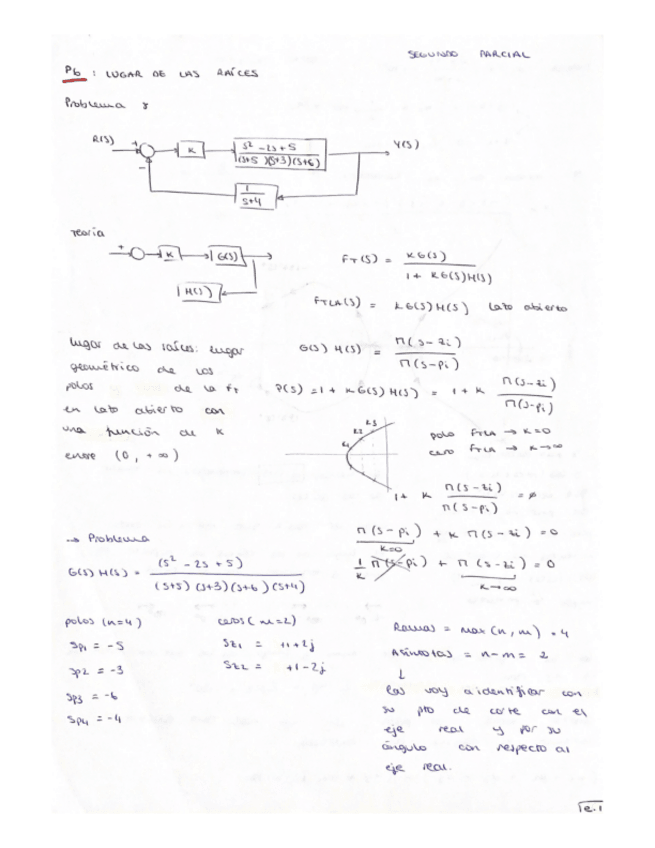 SEGUNDO PARCIAL
P6 : LUGAR DE LAS RAÍCES
Problema 8
R(S) + - K (s² - 2s + 5) / ((s+5)(s+3)(s+6)) Y(S)
1 / (s+4)
Teoría
+ K G(S)
H(S)
F_T(S) = K G(S) / (1 + K G(S) H(S))
F_TLA(S) = K G(S) H(S) lazo abierto
lugar de las raíces: lugar
geométrico de los
polos de la F_T
en lazo abierto con
una función de K
entre (0, +∞)
G(S) H(S) = Π(s-zi) / Π(s-pi)
P(S) = 1 + K G(S) H(S) = 1 + K Π(s-zi) / Π(s-pi)
K1 K2 K3
polo F_TLA → K=0
cero F_TLA → K→∞
1 + K Π(s-zi) / Π(s-pi) = 0
Π(s-pi) + K Π(s-zi) = 0
K=0
1/K Π(s-pi) + Π(s-zi) = 0
K→∞
→ Problema
G(S) H(S) = (s² - 2s + 5) / ((s+5)(s+3)(s+6)(s+4))
polos (n=4)
Sp1 = -5
Sp2 = -3
Sp3 = -6
Sp4 = -4
ceros (m=2)
Sz1 = +1+2j
Sz2 = +1-2j
Ramas = max(n,m) = 4
Asíntotas = n-m = 2
↓
las voy a identificar con
su pto de corte con el
eje real y por su
ángulo con respecto al
eje real.